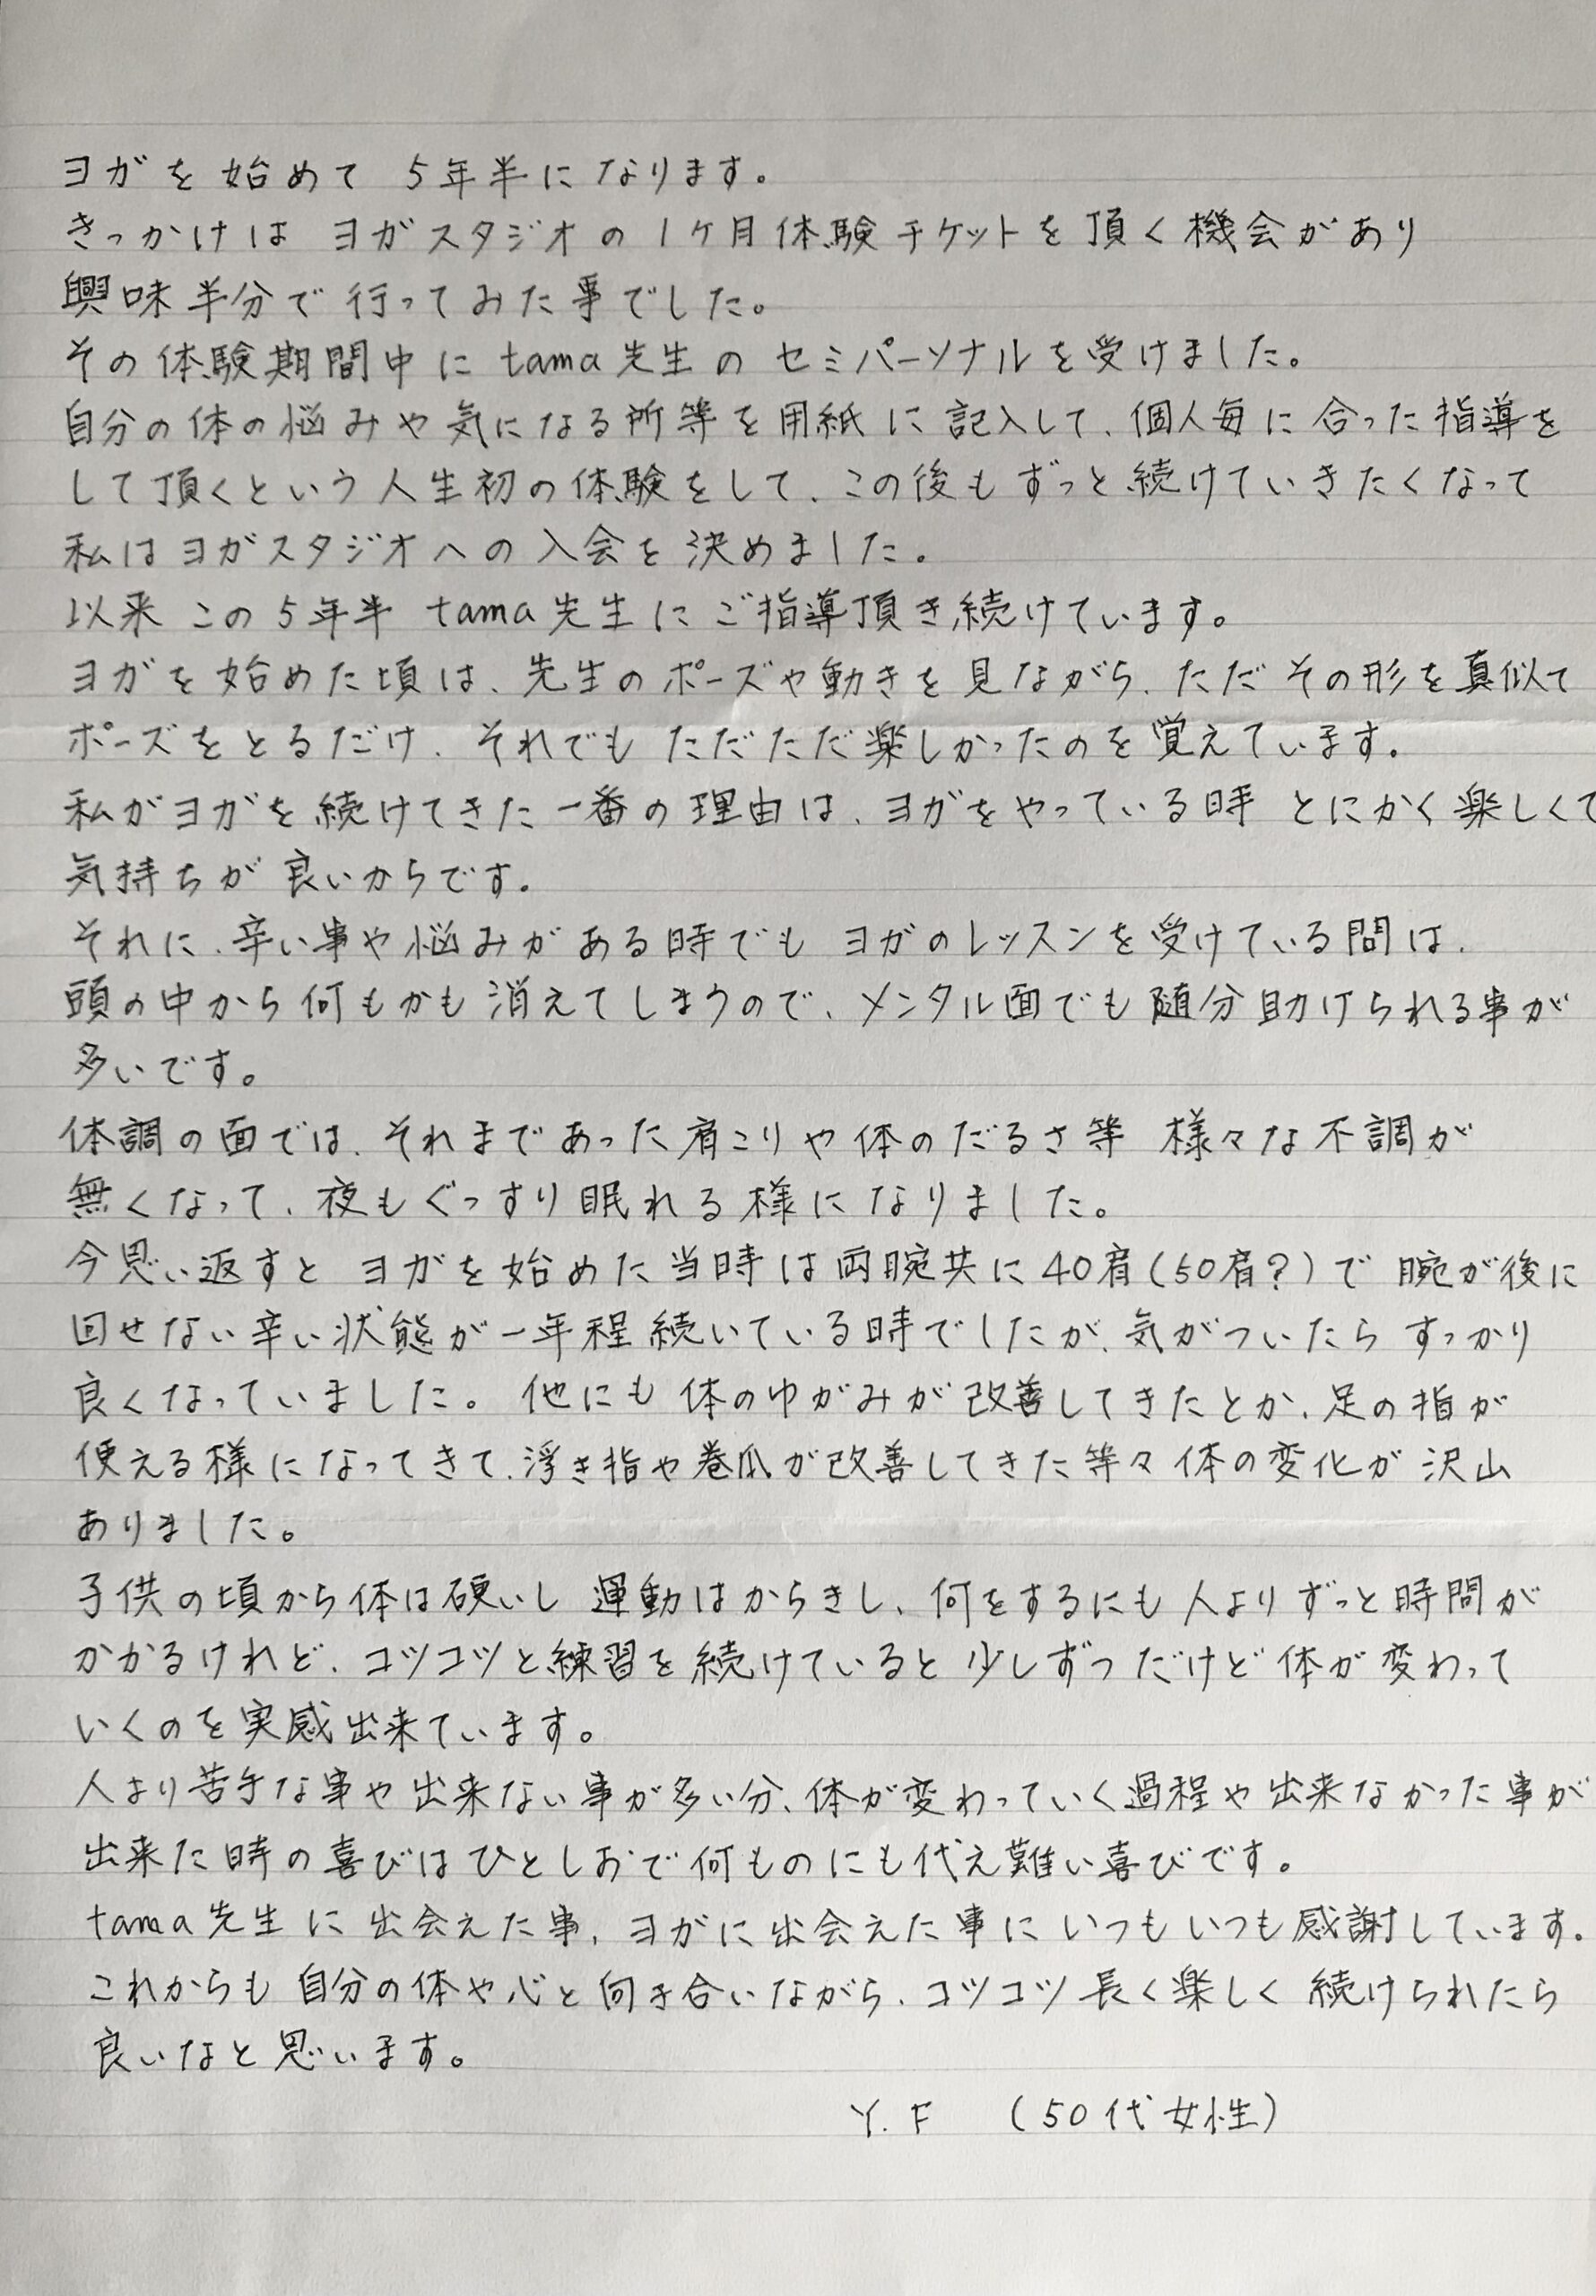 ヨガを始めて 5年半になります。
きっかけは ヨガスタジオの1ヶ月体験チケットを頂く機会があり
興味半分で行ってみた事でした。
その体験期間中に tama先生の セミパーソナルを受けました。
自分の体の悩みや気になる所等を用紙に記入して、個人毎に合った指導を
して頂くという人生初の体験をして、この後もずっと続けていきたくなって
私はヨガスタジオへの入会を決めました。
以来 この5年半 tama先生にご指導頂き続けています。
ヨガを始めた頃は、先生のポーズや動きを見ながら、ただその形を真似て
ポーズをとるだけ、それでもただただ楽しかったのを覚えています。
私がヨガを続けてきた一番の理由は、ヨガをやっている時 とにかく楽しくて
気持ちが良いからです。
それに、辛い事や悩みがある時でも ヨガのレッスンを受けている間は、
頭の中から何もかも消えてしまうので、メンタル面でも随分助けられる事が
多いです。
体調の面では、それまであった肩こりや体のだるさ等 様々な不調が
無くなって、夜もぐっすり眠れる様になりました。
今思い返すと ヨガを始めた当時は両腕共に40肩(50肩?)で 腕が後に
回せない辛い状態が一年程続いている時でしたが、気がついたらすっかり
良くなっていました。他にも体のゆがみが改善してきたとか、足の指が
使える様になってきて、浮き指や巻爪が改善してきた等々体の変化が沢山
ありました。
子供の頃から体は硬いし 運動はからきし、何をするにも人よりずっと時間が
かかるけれど、コツコツと練習を続けていると少しずつだけど体が変わって
いくのを実感出来ています。
人より苦手な事や出来ない事が多い分、体が変わっていく過程や出来なかった事が
出来た時の喜びはひとしおで何ものにも代え難い喜びです。
tama先生に出会えた事、ヨガに出会えた事にいつもいつも感謝しています。
これからも自分の体や心と向き合いながら、コツコツ長く楽しく続けられたら
良いなと思います。
Y.F (50代女性)